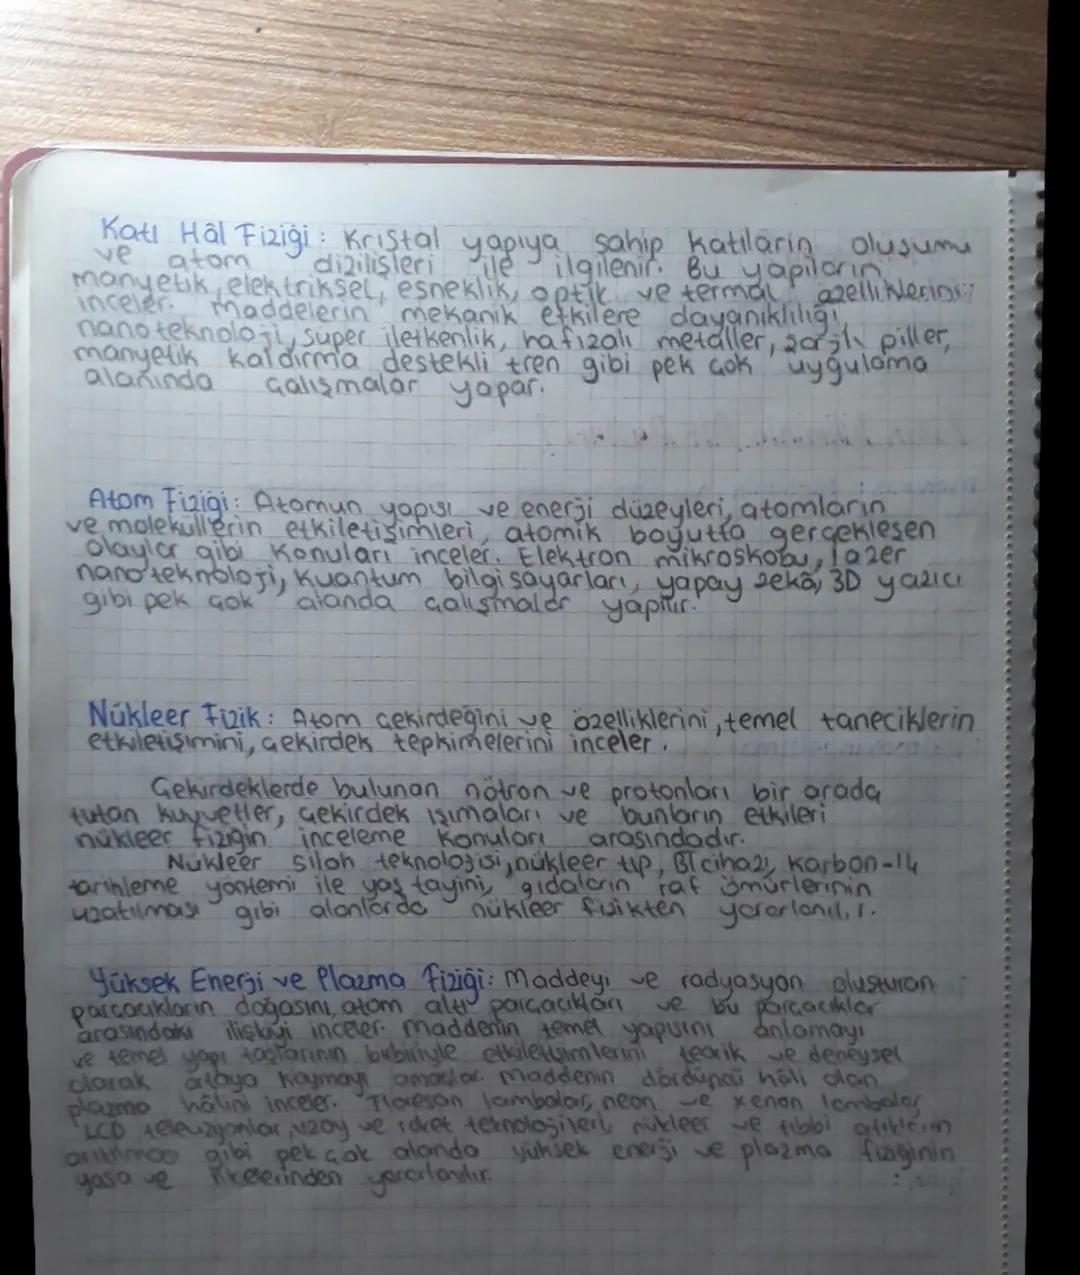 Katı Hâl Fiziği: Kristal yapıya sahip katıların oluşumu
ve atom dizilişleri ile ilgilenir. Bu yapıların
manyetik, elektriksel, esneklik, optik ve termal özelliklerini
inceler. maddelerin mekanik etkilere dayanıklılığı
nanoteknoloji, süper iletkenlik, hafızalı metaller, şarjlı piller,
manyetik kaldırma destekli tren gibi pek çok uygulama
alanında çalışmalar yapar.
Atom Fiziği: Atomun yapısı ve enerji düzeyleri, atomların
ve moleküllerin etkiletişimleri, atomik boyutta gerçekleşen
olaylar gibi konuları inceler. Elektron mikroskobu, lazer
nanoteknoloji, kuantum bilgisayarları, yapay zekâ, 3D yazıcı
gibi pek çok alanda çalışmalar yapılır.
Nükleer Fizik: Atom çekirdeğini ve özelliklerini, temel taneciklerin
etkiletişimini, çekirdek tepkimelerini inceler.
Çekirdeklerde bulunan nötron ve protonları bir arada
tutan kuvvetler, çekirdek ışımaları ve bunların etkileri
nükleer fiziğin inceleme konuları arasındadır.
Nükleer silah teknolojisi, nükleer tıp, BT cihazı, Karbon-14
tarihleme yöntemi ile yaş tayini, gıdaların raf ömürlerinin
uzatılması gibi alanlarda nükleer fizikten yararlanılır.
Yüksek Enerji ve Plazma Fiziği: Maddeyi ve radyasyon oluşturan
parçacıkların doğasını, atom altı parçacıkları ve bu parçacıklar
arasındaki ilişkiyi inceler. maddenin temel yapısını anlamayı
ve temel yapı taşlarının birbiriyle etkiletişimlerini teorik ve deneysel
olarak ortaya koymayı amaçlar. Maddenin dördüncü hâli olan
plazma hâlini inceler. Floresan lambalar, neon ve xenon lambalar
LCD televizyonlar, uzay ve roket teknolojileri, nükleer ve tıbbi atıkların
arıtılması gibi pek çok alanda yüksek enerji ve plazma fiziğinin
yasa ve ilkelerinden yararlanılır.